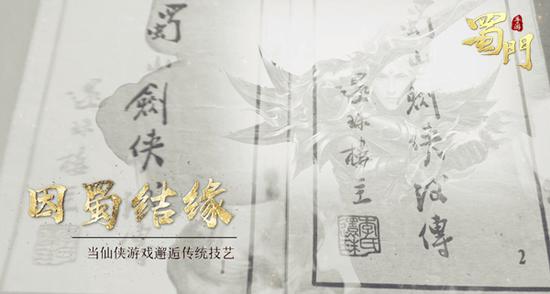 蜀山劍俠
還珠樓
蜀山劍俠後傳
還珠樓主
2
蜀門
手游
因蜀结缘
当仙侠游戏邂逅传统技艺